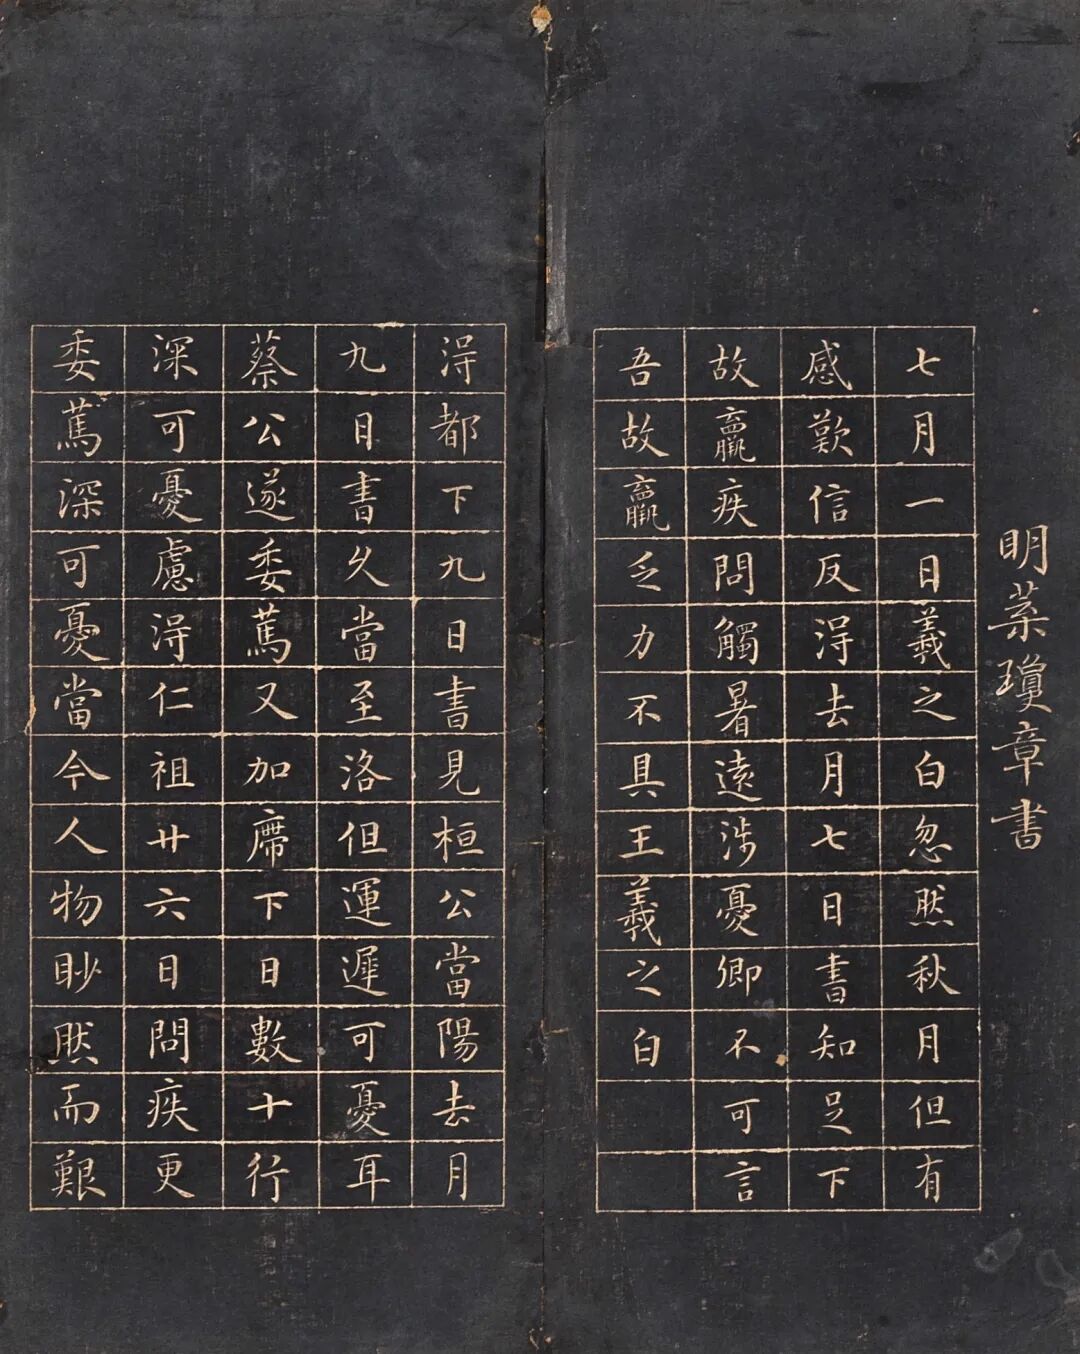 明葉瓊章書
七月一日羲之白忽然秋月但有
感歎信反得去月七日書知足下
故羸疾問觸暑遠涉憂卿不可言
吾故羸乏力不具王羲之白
得都下九日書見桓公當陽去月
九日書久當至洛但運遲可憂耳
蔡公遂委篤又加廗下日數十行
深可憂慮得仁祖廿六日問疾更
委篤深可憂當今人物眇然而艱